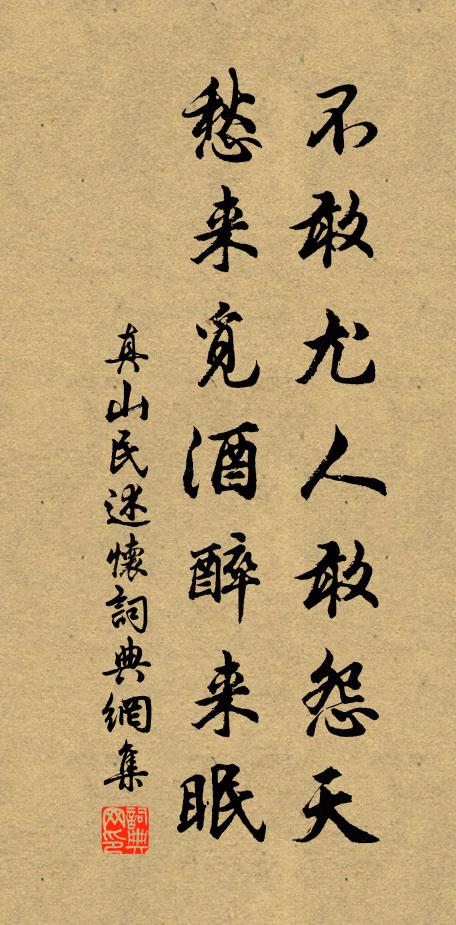 不敢尤人敢怨天
愁来覓酒醉来眠
真山民述懷詞典網集
詞典网印